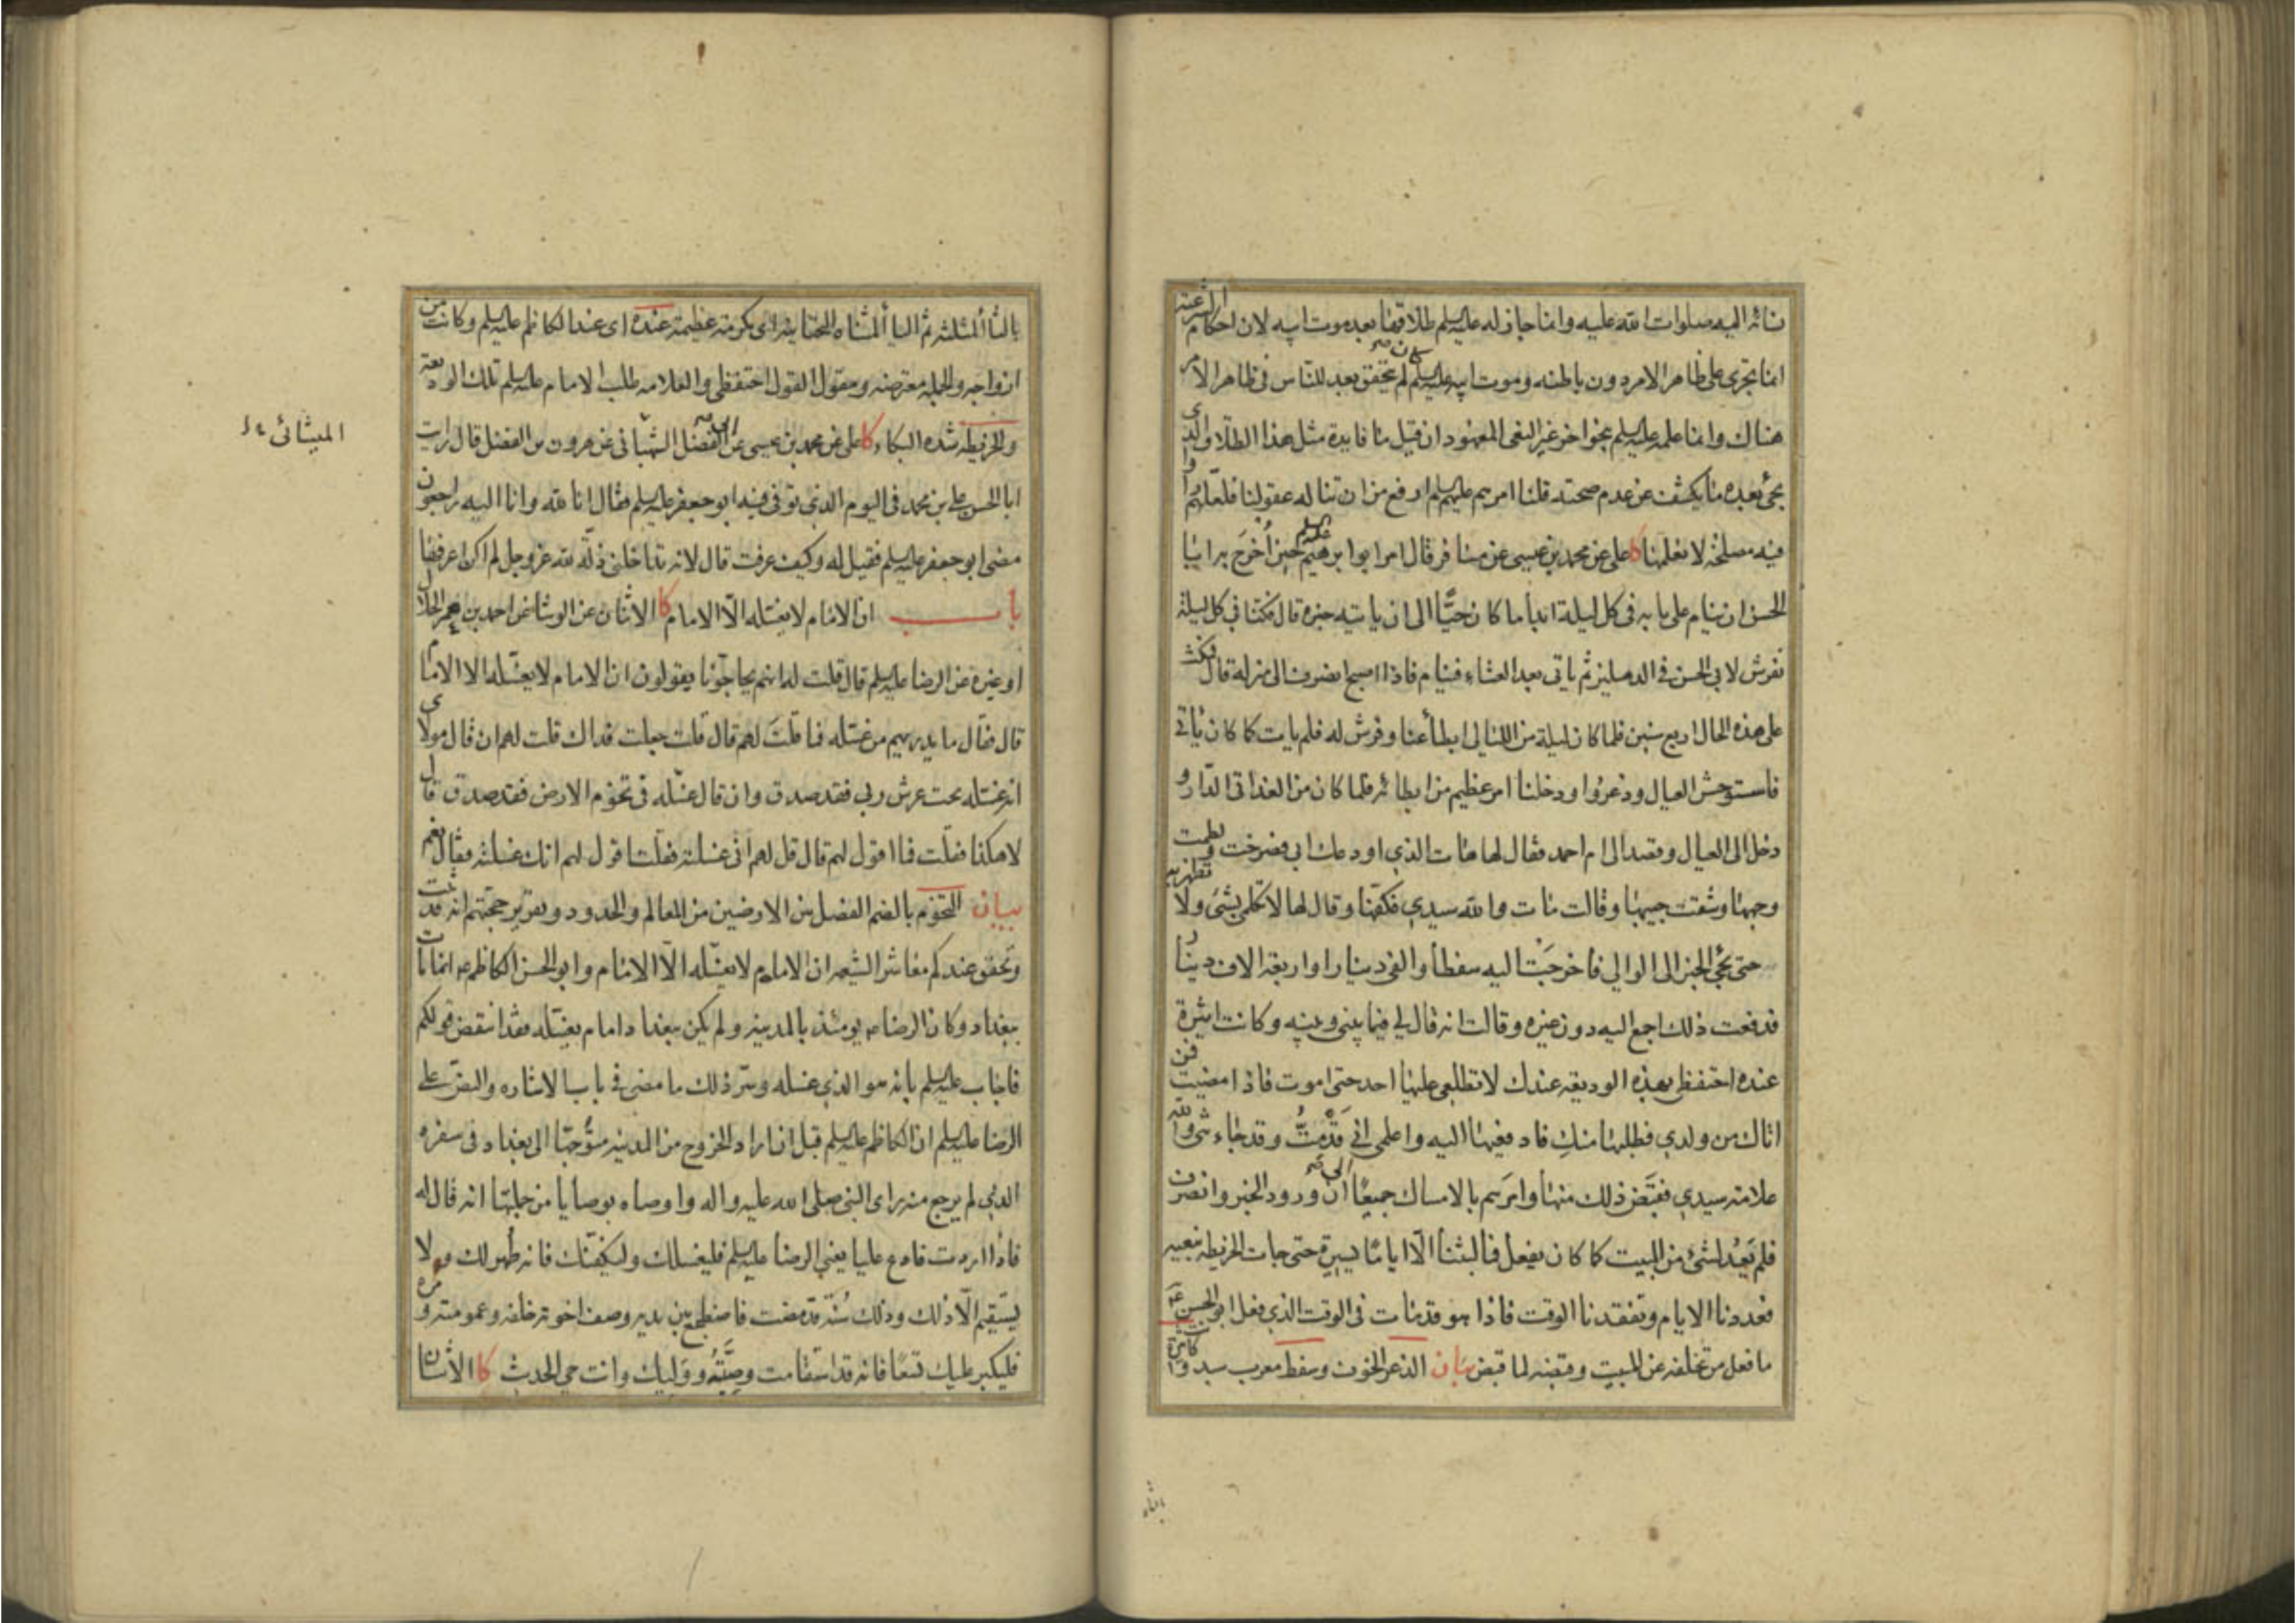 نائه اليه صلوات الله عليه وانما جاز له عليه السلم طلاقها بعد موت ابيه لان احكام الشريعة
انما تجرى على ظاهر الامر دون باطنه وموت ابيه عليه السلم كان لم يتحقق بعد للناس فى ظاهر الامر
هناك وانما علمه عليه السلم بنحو اخر غير النحو المعهود ان قيل ما فايدة مثل هذا الطلاق والذى
يجئ بعده ما يكشف عن عدم صحته قلنا امرهم عليهم السلم ارفع من ان تناله عقولنا فلعلهم راوا
فيه مصلحة لا نعلمها كا على عن محمد بن عيسى عن مسافر قال امر ابو ابرهيم عليه السلم حين أخرج به ابا
الحسن ان ينام على بابه فى كل ليلة ابدا ما كان حيًّا الى ان ياتيه خبره قال فكنا فى كل ليلة
نفرش لابى الحسن فى الدهليز ثم ياتى بعد العشاء فينام فاذا اصبح انصرف الى منزله قال فمكث
على هذه الحال اربع سنين فلما كان ليلة من الليالى ابطأ عنا وفرش له فلم يات كما كان ياتى
فاستوحش العيال وذعروا ودخلنا امر عظيم من ابطائه فلما كان من الغد اتى الدار و
دخل الى العيال وقصد الى ام احمد فقال لها هات الذي اودعك ابى فصرخت ولطمت
وجهها وشقت جيبها وقالت مات والله سيدي فكفها وقال لها لا تكلمى بشئ ولا تظهريه
حتى يجئ الخبر الى الوالي فاخرجت اليه سفطا والفى دينار او اربعة الاف دينار
فدفعت ذلك اجمع اليه دون غيره وقالت انه قال لي فيما بينى وبينه وكانت اثيرة
عنده احتفظى بهذه الوديعة عندك لا تطلعى عليها احد حتى اموت فاذا مضيت فمن
اتاك من ولدي فطلبها منك فادفعيها اليه واعلمى اني قد مت وقد جاءنى والله
علامة سيدي فقبض ذلك منها وامرهم بالامساك جميعًا الى ان ورود الخبر وانصرف
فلم يعد لشئ من المبيت كما كان يفعل فما لبثنا الا اياما يسيرة حتى جات الخريطة بنعيه
فعددنا الايام وتفقدنا الوقت فاذا هو قد مات فى الوقت الذي فعل ابو الحسن
ما فعل من تخلفه عن المبيت وقبضه لما قبض بيان الذعر الخوف وسفط معرب سبد واثيرة
بالثاء
بالثا المثلثه ثم اليا المثناه التحتانيه اى مكرمة عظيمة عنده اى عند الكاظم عليه السلم وكانت من
ازواجه والجمله معترضه ومقول القول احتفظى والعلامه طلب الامام عليه السلم تلك الوديعة
والخريطه شده البكاء كا على عن محمد بن عيسى عن ابى الفضل الشهبانى عن هرون بن الفضل قال رايت
الميثائى
ابا الحسن على بن محمد فى اليوم الذي توفى فيه ابو جعفر عليه السلم فقال انا لله وانا اليه راجعون
مضى ابو جعفر عليه السلم فقيل له وكيف عرفت قال لانه تداخلنى ذلة لله عز وجل لم اكن اعرفها
باب ان الامام لا يغسله الا الامام كا الاثنان عن الوشا عن احمد بن عمر الحلال
او غيره عن الرضا عليه السلم قال قلت له انهم يحاجونا يقولون ان الامام لا يغسله الا الامام
قال فقال ما يدريهم من غسله فما قلت لهم قال قلت جعلت فداك قلت لهم ان قال مولاى
انه غسله تحت عرش ربي فقد صدق وان قال غسله فى تخوم الارض فقد صدق قال
لا هكذا فقلت فما اقول لهم قال قل لهم انى غسلته فقلت اقول لهم انك غسلته فقال نعم
بيان التخوم بالضم الفصل بين الارضين من المعالم والحدود وتقرير حجتهم انه قد ثبت
وتحقق عندكم معاشر الشيعه ان الامام لا يغسله الا الامام وابو الحسن الكاظم ع انما مات
ببغداد وكان الرضا ع يومئذ بالمدينه ولم يكن ببغداد امام يغسله فقد انتقض قولكم
فاجاب عليه السلم بانه هو الذي غسله وسر ذلك ما مضى فى باب الاشاره والنص على
الرضا عليه السلم ان الكاظم عليه السلم قبل ان اراد الخروج من المدينه متوجها الى بغداد فى سفره
الذي لم يرجع منه راى النبى صلى الله عليه واله واوصاه بوصايا من جملتها انه قال له
فاذا اردت فادع عليا يعني الرضا عليه السلم فليغسلك وليكفنك فانه طهر لك ولا
يستقيم الا ذلك وذلك سنة قد مضت فاضطجع بين يديه وصف اخوته خلفه وعمومته ومره
فليكبر عليك تسعًا فانه قد استقامت وصيته ووليك وانت حي الحديث كا الاثنان